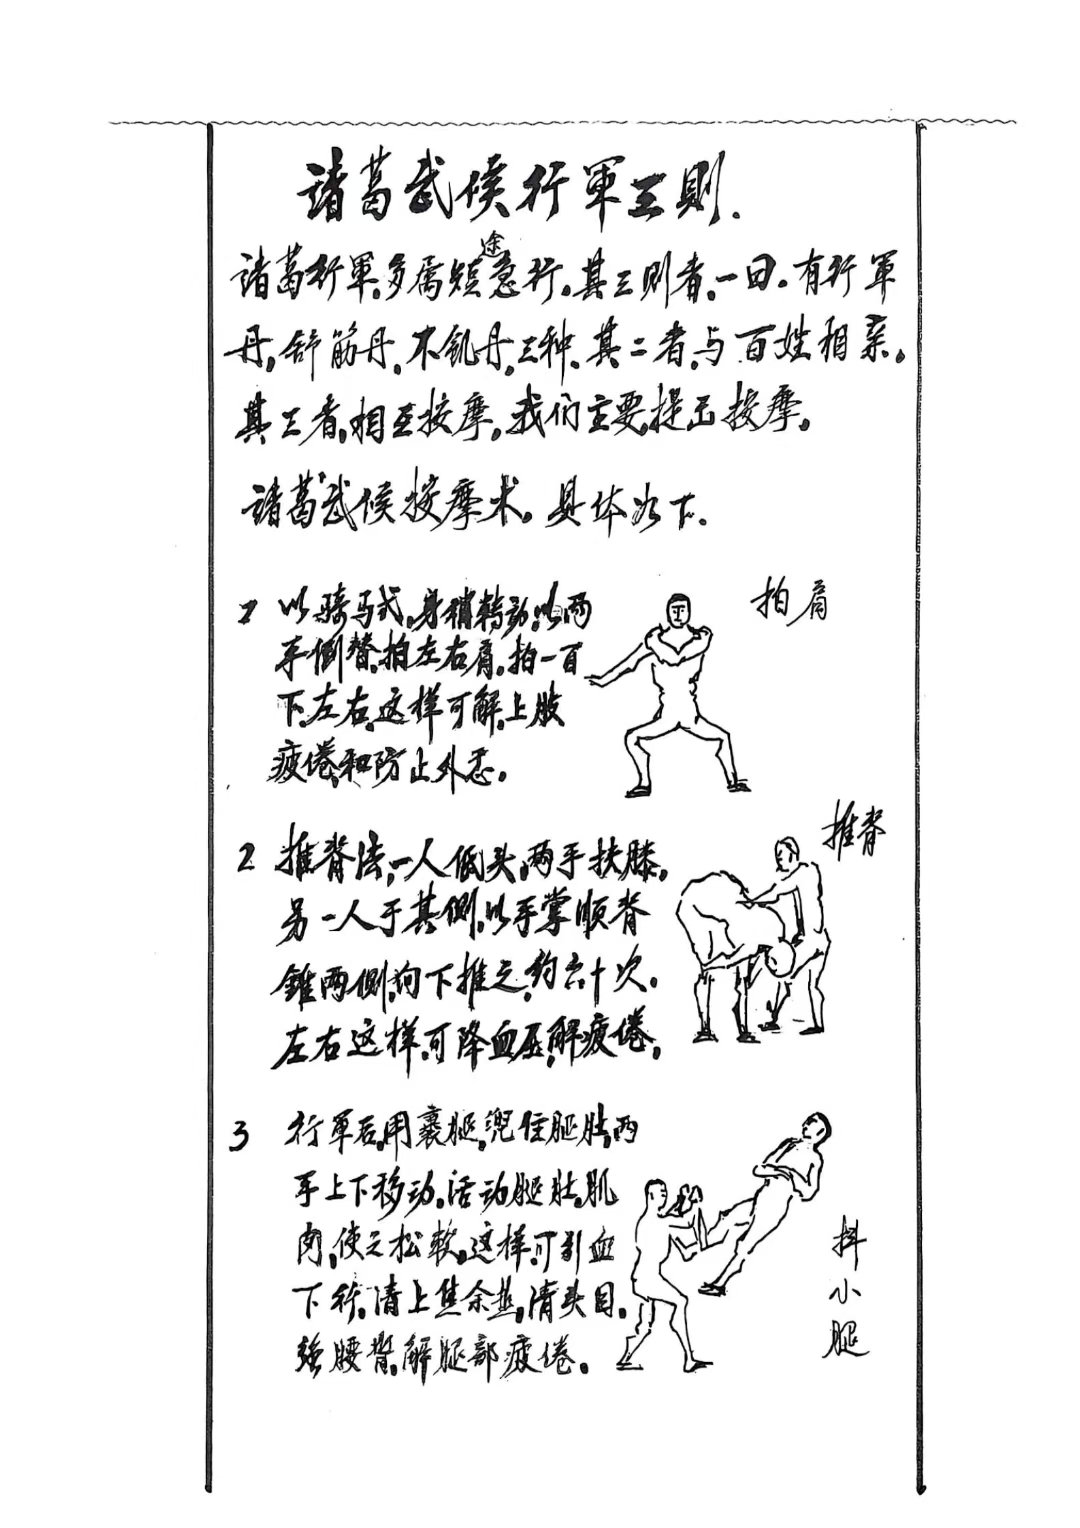 諸葛武侯行軍三則.
諸葛行軍,多属短途急行。其三则者,一曰。有行軍
丹,舒筋丹,不饥丹,三种、其二者,与百姓相亲。
其三者,相互按摩,我们主要,提出按摩。
諸葛武侯按摩术。具体如下.
1 以骑马式,身稍转动,以两
手倒替,拍左右肩,拍一百
下,左右,这样可解,上肢
疲倦,和防止外感。
拍肩
2 推脊法,一人低头,两手扶膝,
另一人于其侧,以手掌顺脊
錐两侧,向下推之,约六十次。
左右这样,可降血压,解疲倦,
推脊
3 行軍后,用裹腿,兜住腿肚,两
手上下移动。活动腿肚,肌
肉,使之松軟,这样,可引血
下行,清上焦余热,清头目。
強腰背,解腿部疲倦。
抖小腿